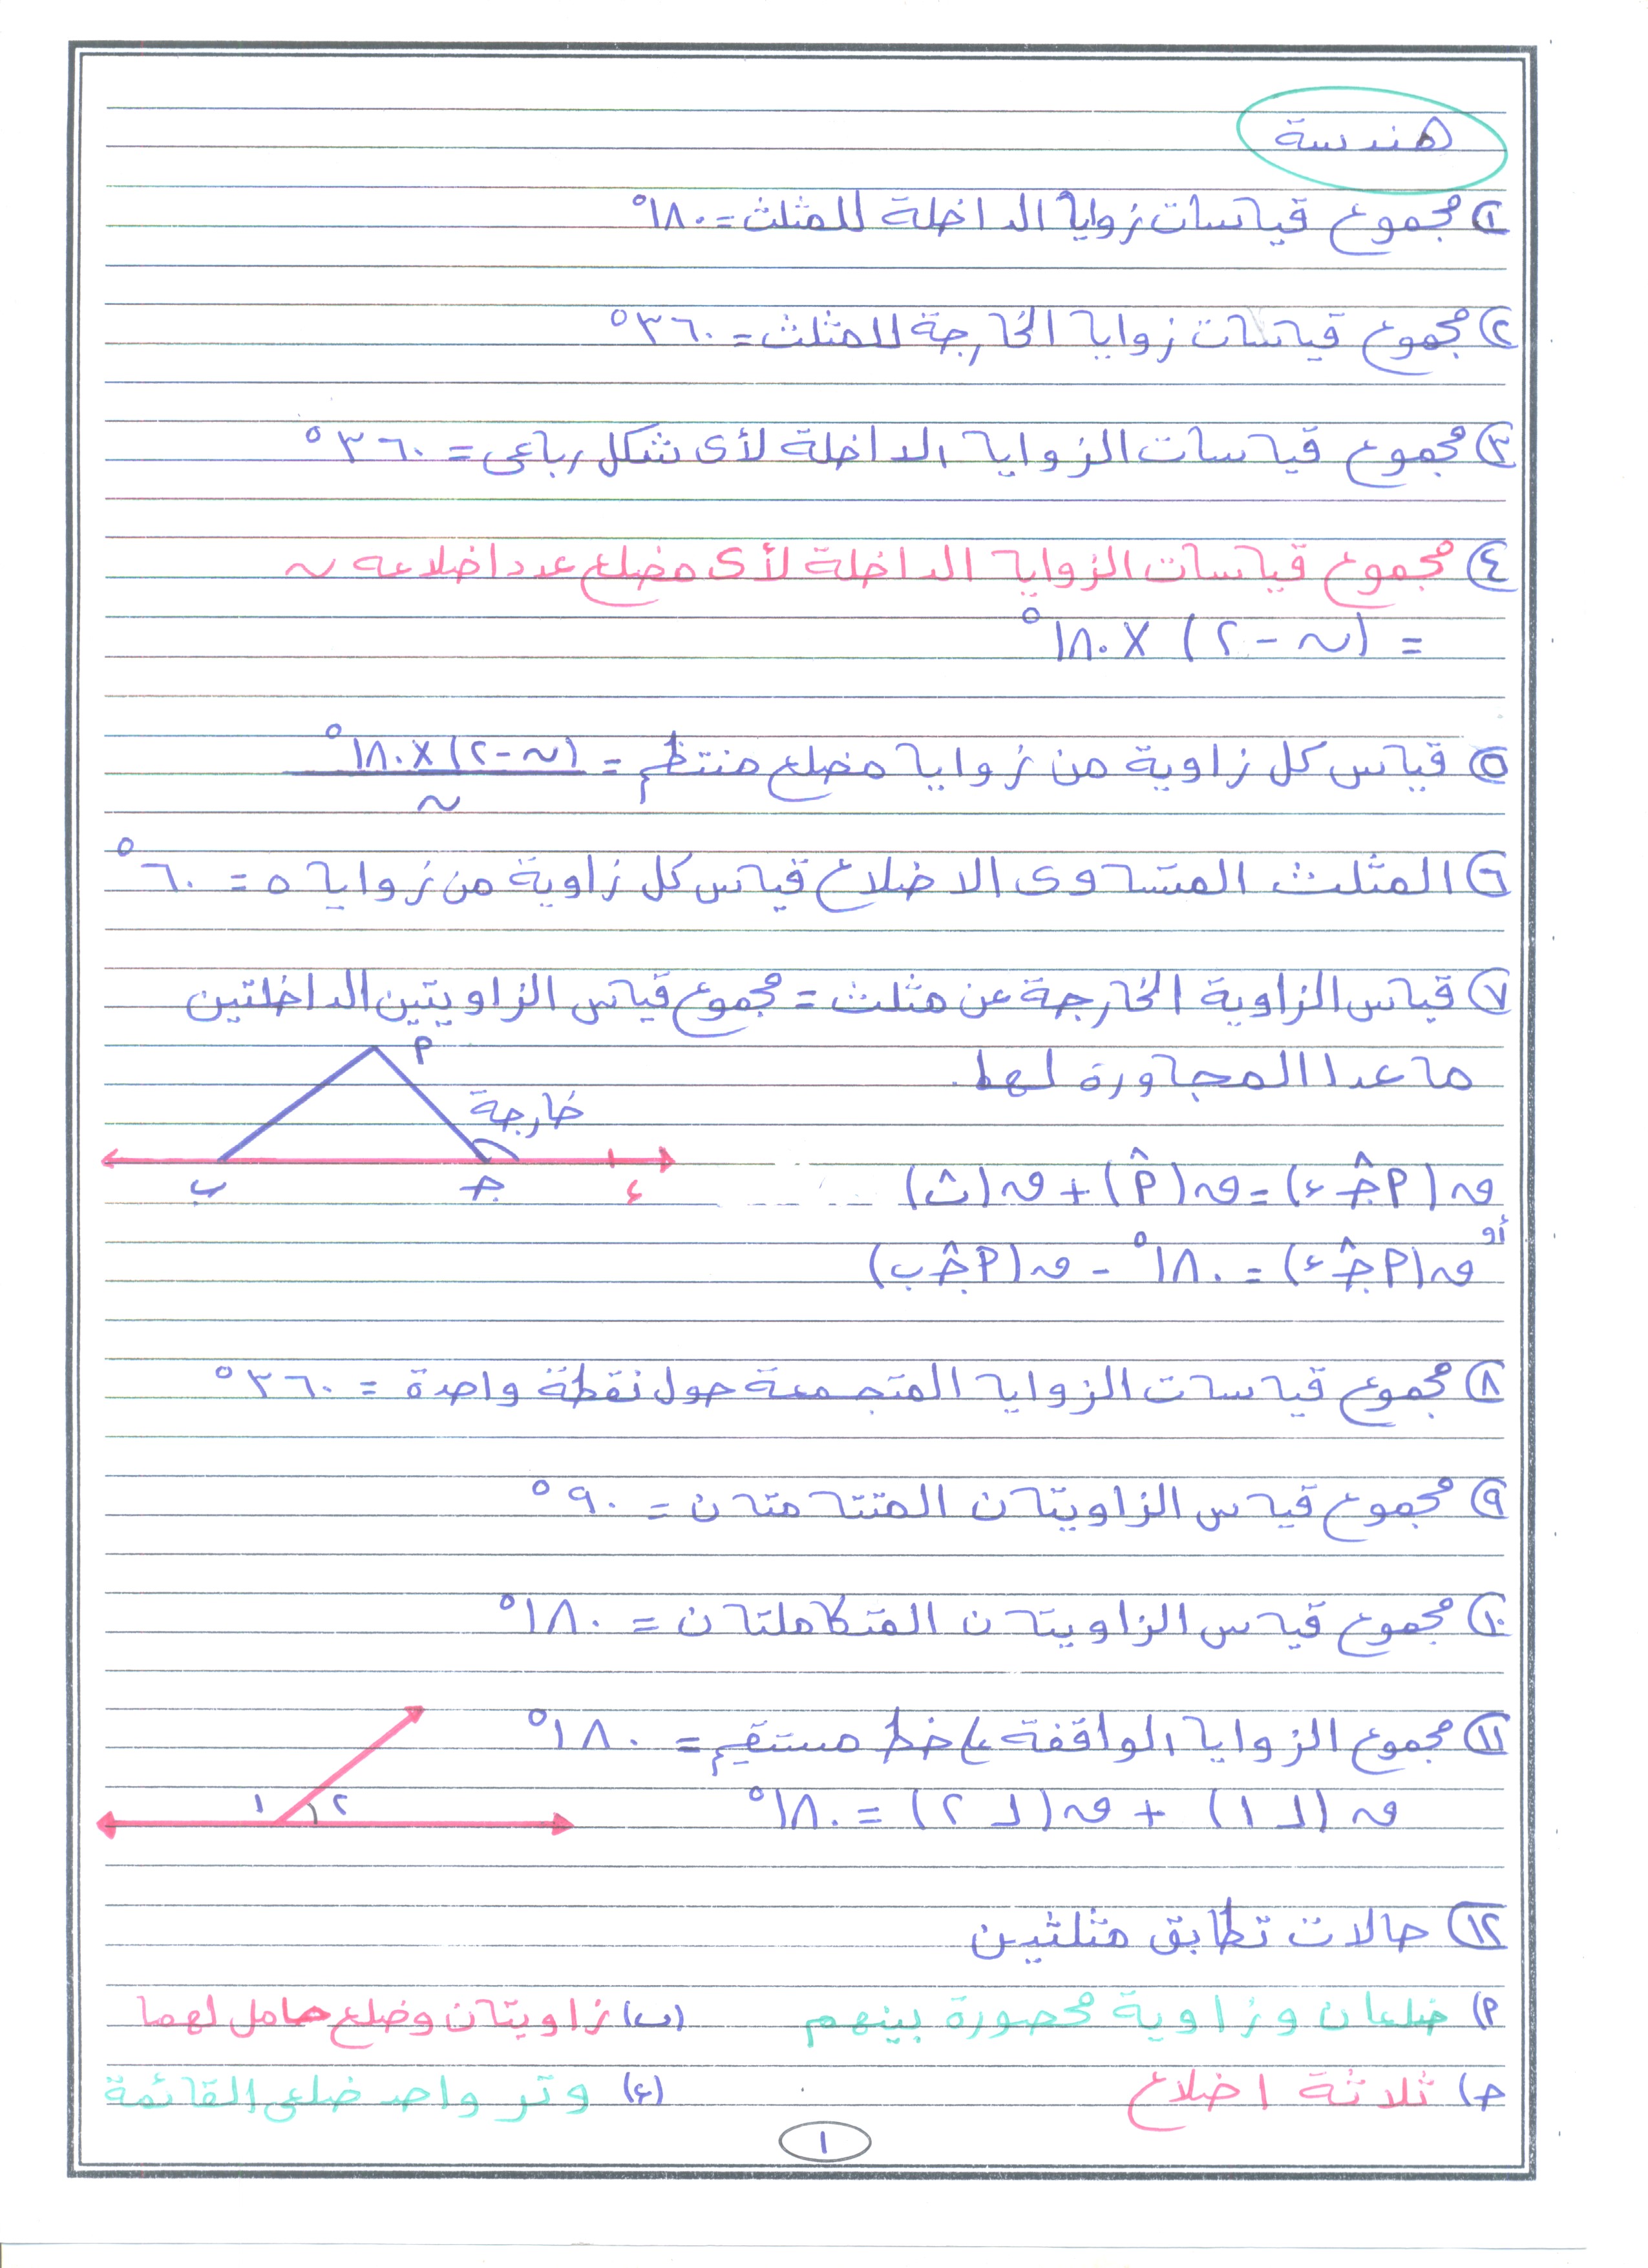 هندسة
١) مجموع قياسات زوايا الداخلة للمثلث = ١٨٠°
٢) مجموع قياسات زوايا الخارجة للمثلث = ٣٦٠°
٣) مجموع قياسات الزوايا الداخلة لأى شكل رباعى = ٣٦٠°
٤) مجموع قياسات الزوايا الداخلة لأى مضلع عدد اضلاعه ن
= (ن - ٢) × ١٨٠°
٥) قياس كل زاوية من زوايا مضلع منتظم = (ن - ٢) × ١٨٠° / ن
٦) المثلث المتساوى الاضلاع قياس كل زاوية من زواياه = ٦٠°
٧) قياس الزاوية الخارجة عن مثلث = مجموع قياس الزاويتين الداخلتين
ما عدا المجاورة لها.
أ
خارجة
ب جـ ء
ق (أ جـ^ ء) = ق (أ^) + ق (ث)
أو
ق (أ جـ^ ء) = ١٨٠° - ق (أ جـ^ ب)
٨) مجموع قياسات الزوايا المتجمعة حول نقطة واحدة = ٣٦٠°
٩) مجموع قياس الزاويتان المتتامتان = ٩٠°
١٠) مجموع قياس الزاويتان المتكاملتان = ١٨٠°
١١) مجموع الزوايا الواقفة على خط مستقيم = ١٨٠°
١ ٢
ق (ل ١) + ق (ل ٢) = ١٨٠°
١٢) حالات تطابق مثلثين
أ) ضلعان وزاوية محصورة بينهم (ب) زاويتان وضلع حامل لهما
جـ) ثلاثة اضلاع (ء) وتر واحد ضلعى القائمة
١